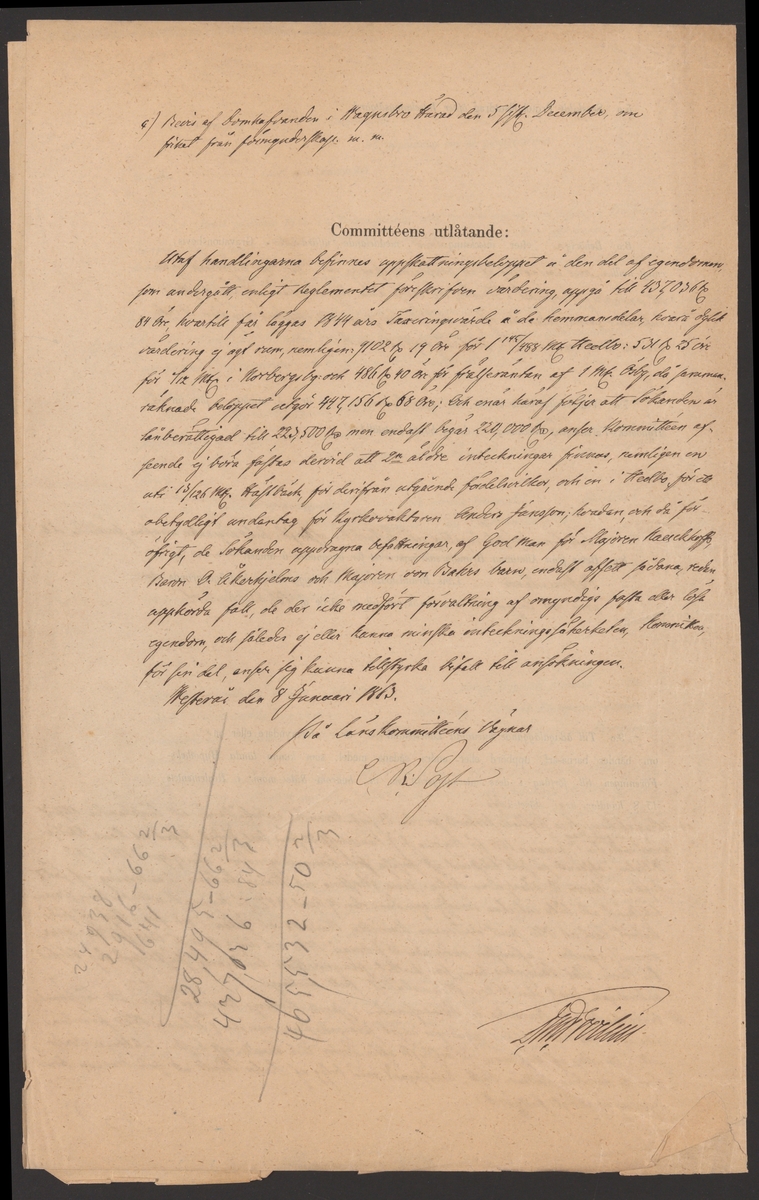 c) Bevis af Domhafvanden i Wagnsbro Härad den 5 sistl. December, om
frihet från förmynderskap. m. m.
Committéens utlåtande:
Utaf handlingarna befinnes uppskattningsbeloppet å den del af egendomen,
som undergått, enligt Reglementet föreskrifven värdering, uppgå till 437,036
84 öre, hvartill får läggas 1844 års Taxeringsvärde å de hemmansdelar, hvarå dylik
värdering ej egt rum, nemligen: 9102 19 öre för 1 Mtl Hedbo: 531 25 öre
för 1/12 Mtl. i Norbergsby: och 486 40 öre för frälseräntan af 1 Mtl. då samman-
räknade beloppet utgör 447,156 68 öre; Och enär häraf följer att Sökanden är
lånberättigad till 223,500 men endast begär 220,000, anser Committéen af-
seende ej böra fästas dervid att 2ne äldre inteckningar finnas, nemligen en
uti 13/126 Mtl. för derifrån utgående födelsvilkor, och en i Hedbo, för ett
obetydligt undantag för Kyrkovaktaren Anders Jansson; hvadan, och då för-
öfrigt, de Sökanden uppdragna befattningar, af God man för Majoren
Baron D. Åkerhjelms och Majoren von Bahrs barn, endast afsett sådana, redan
uppkomna fall, de der icke medfört förvaltning af omyndigs fasta eller lösa
egendom, och således ej eller kunna minska inteckningssäkerheten, Kommittén,
för sin del, anser sig kunna tillstyrka bifall till ansökningen.
Westerås den 8 Januari 1863.
På Länskommittéens Vägnar
24 938
2916-66 2/3
1641
28,495-66 2/3
437036:84
465532-50 2/3